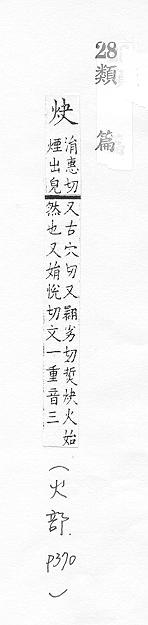 28
類篇
炔
涓惠切又古穴切又翾劣切焆炔火始
煙出皃然也又娟悅切文一重音三
(火部.p370)